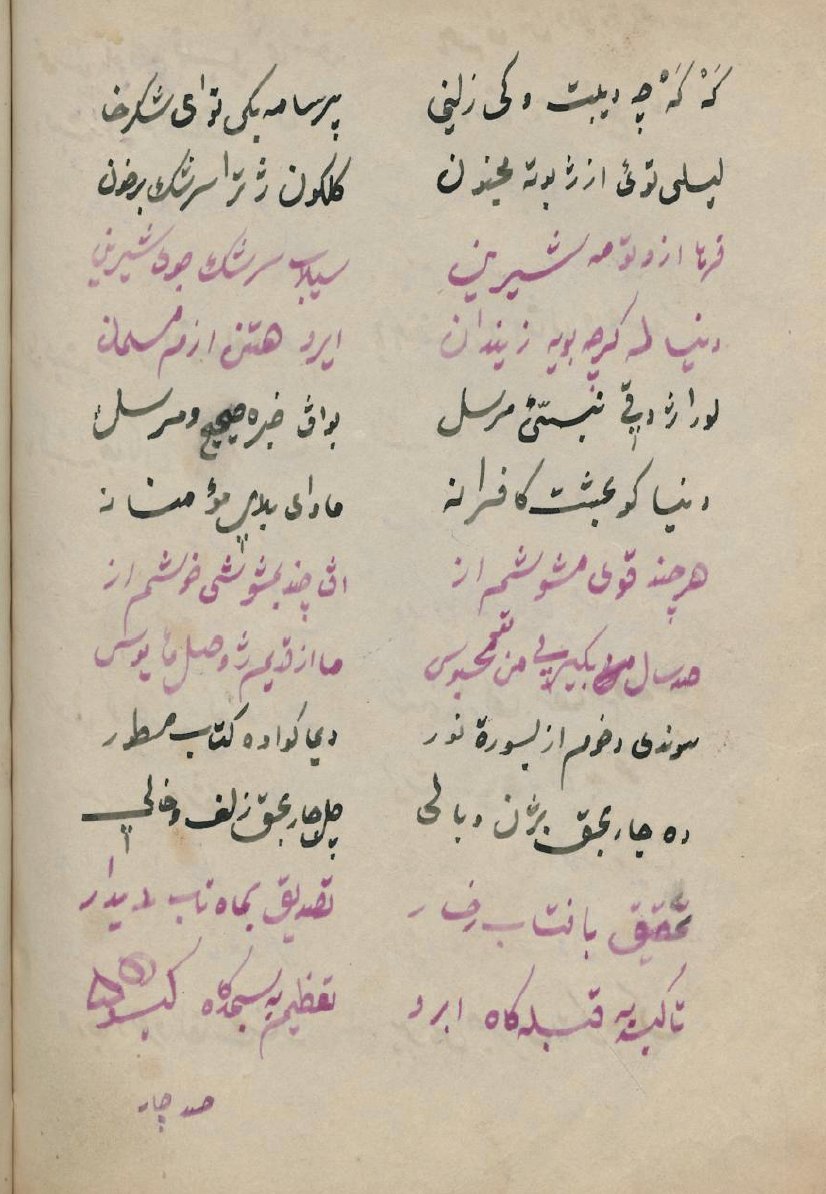 كَهْ كَهْ چه دبیت وکی زلیخی پیرسامه بکی تو ای شکرخا
لیلی توئی از ژ بوته مجنون کلکون ژ ترا سرشک برخون
فرها از وتو مه شیرین سیلاب سرشک جوی شیرین
دنیا لمه کرچه بویه زیندان ایرو هتن ازم مسلمان
لورا ژ دقی مرسل بواف خبره صحیح ومرسل
دنیا کو بهشت کافرانه مادای بلای مؤمنانه
هر چند قوی مشوشم از اف چند بشوشی خوشم از
صد سال بکیری من محبوس ما از قدیم ژ وصل مأیوس
سوندی دخوم از بسورة نور دیما کو اوه کتاب مسطور
ده جار بحق بژن وبالی چل جار بحق زلف وخالی
تحقیق بافتاب رخسار تصدیق بماه تاب دیدار
تأکید به قبله‌کاه ابرو تعظیم به سجدکاه کیسو
صد جار